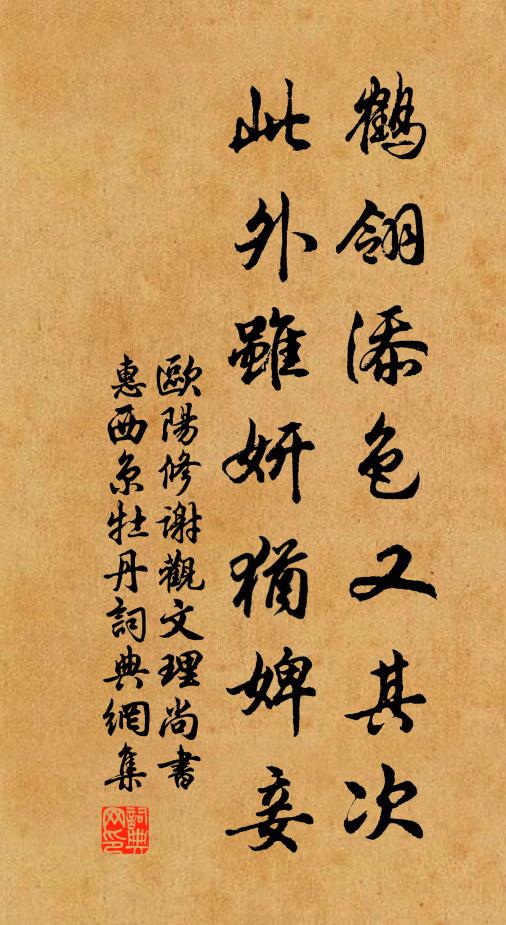 鶴翎添色又其次
此外雖妍猶婢妾
歐陽修謝觀文理尚書
惠西京牡丹詞典網集
詞典
网印